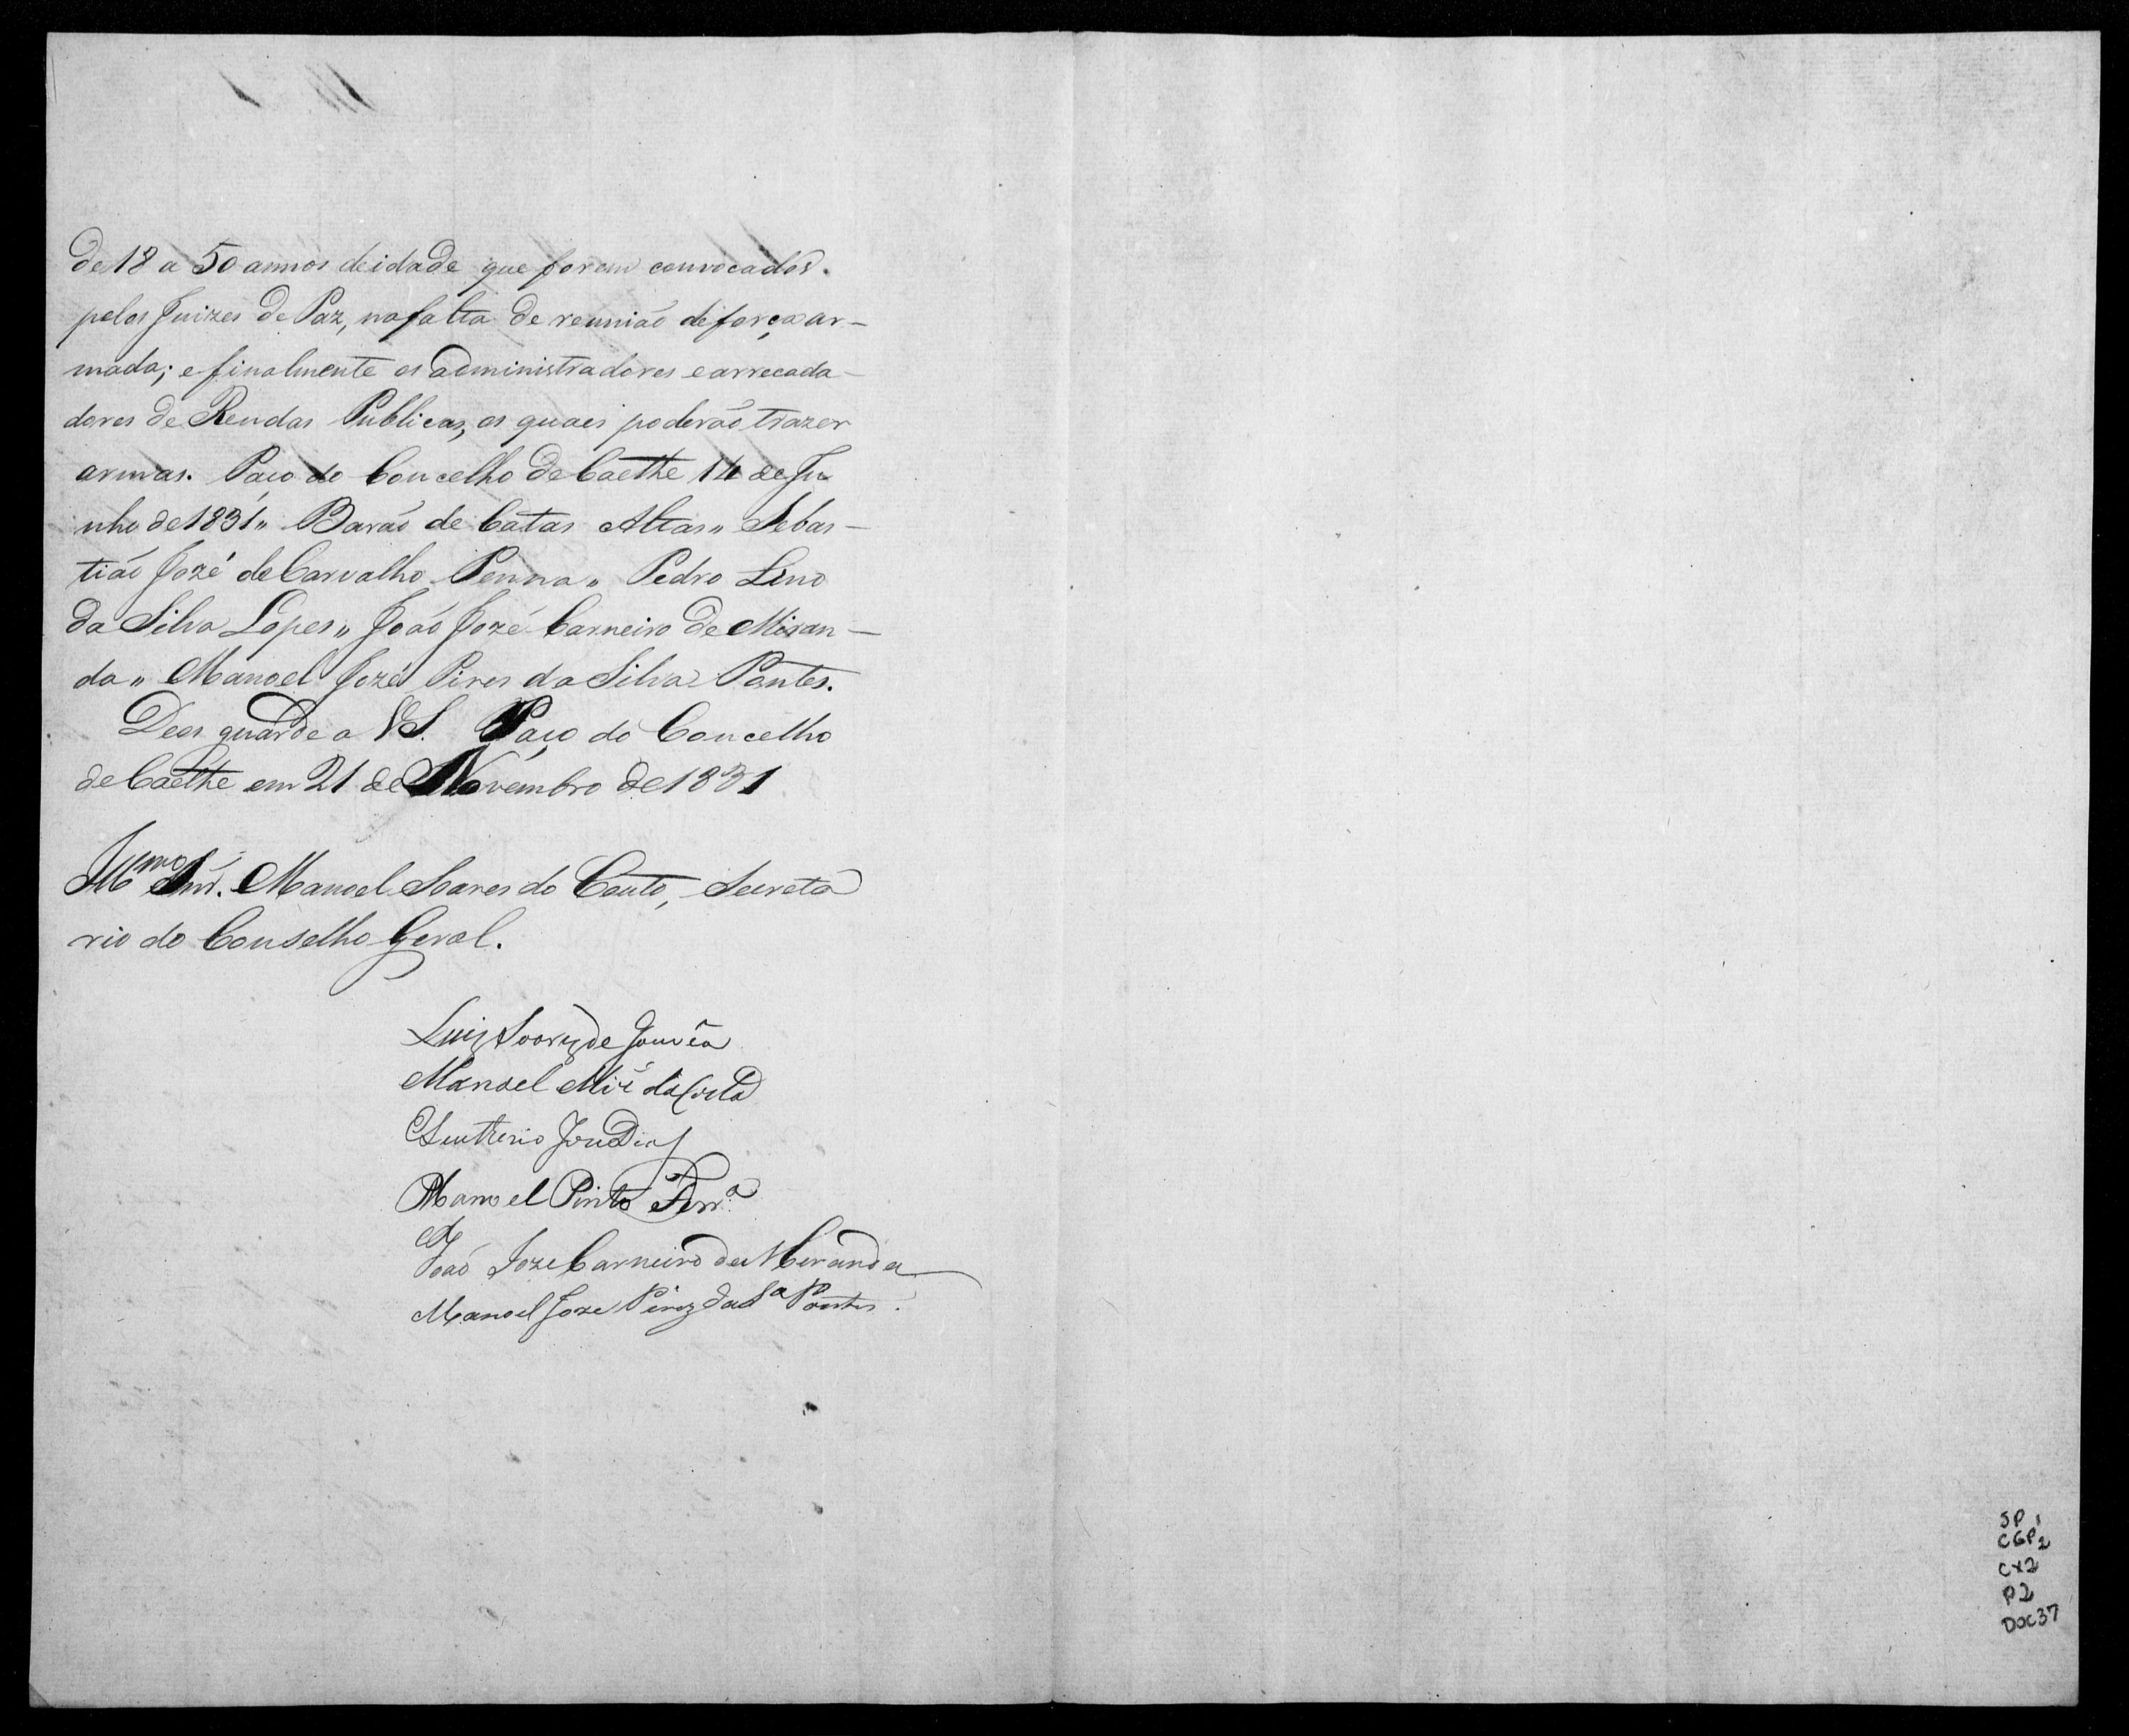 de 18 a 50 annos de idade que forem convocados
pelos Juizes de Paz, na falta de reunião de força ar-
mada; e finalmente os administradores e arrecada-
dores de Rendas Publicas, os quaes poderão trazer
armas. Paço do Concelho de Caethe 14 de Ju
nho de 1831 „ Barão de Catas Altas „ Sebas-
tião Jozé de Carvalho Penna „ Pedro Lino
da Silva Lopes „ João Jozé Carneiro de Miran-
da „ Manoel Jozé Pires da Silva Pontes.
Deos guarde a VS. Paço do Concelho
de Caethe em 21 de Novembro de 1831
Illmo Snr. Manoel Soares do Couto, Secreta
rio do Conselho Geral.
Luiz Soares de Gouvêa
Manoel da Costa
Eleutherio Joze Dias
Manoel Pinto Ferr.a
João Joze Carneiro de Miranda
Manoel Joze Pirez da S.a Pontes.
SP 1
CGP2
CX2
P2
DOC37